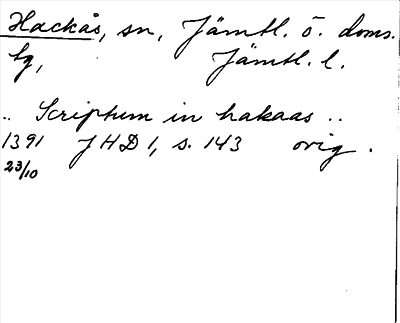 Hackås, sn, Jämtl. ö. doms.
tg, Jämtl. l.
.. Scriptum in hakaas ..
1391 JHD 1, s. 143 orig.
23/10